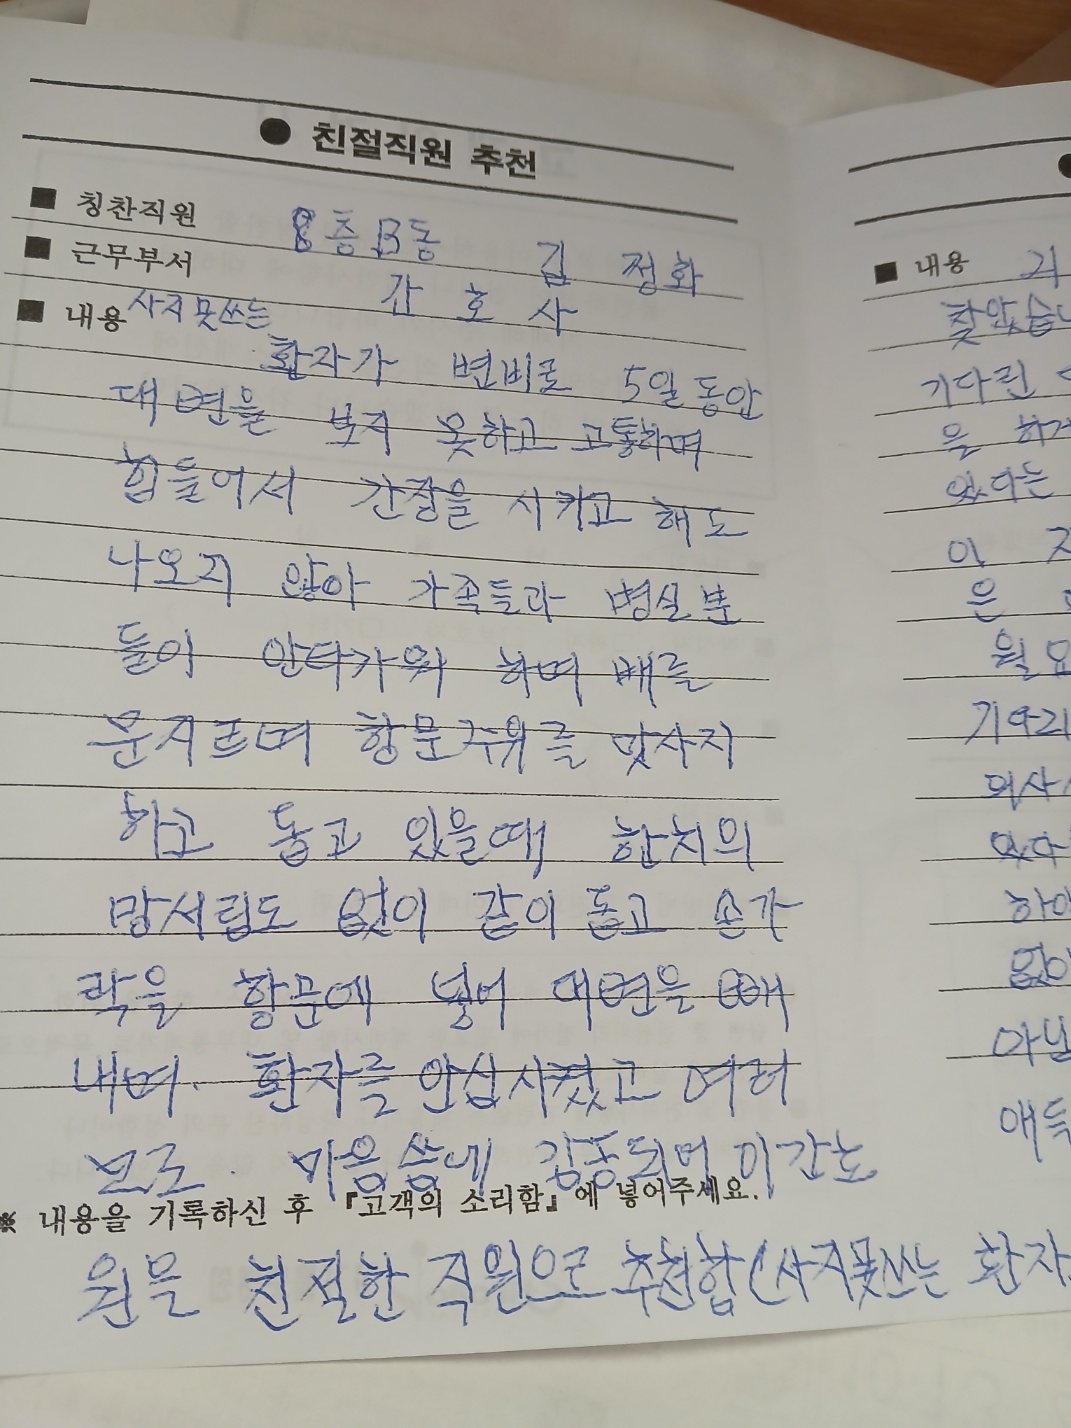 ● 친절직원 추천
■ 칭찬직원 8층 B동 김 정화
■ 근무부서 간 호 사
■ 내용 사지못쓰는
환자가 변비로 5일동안
대변을 보지 못하고 고통하며
힘들어서 간장을 시키고 해도
나오지 않아 가족들과 병실분
들이 안타가워 하며 배를
문지르며 항문주위를 맛사지
하고 돕고 있을때 한치의
망서림도 없이 같이 돕고 손가
락을 항문에 넣어 대변을 빼
내며. 환자를 안심시켰고 여러
보로. 마음씀에 감동되어 이간호
※ 내용을 기록하신 후 『고객의 소리함』에 넣어주세요.
원을 친절한 직원으로 추천합 (사지못쓰는 환자
■ 내용
찾았습니
기다린
을 하
있다는
이
은
월요
기다리
의사
있다
하
없이
아닐
애득